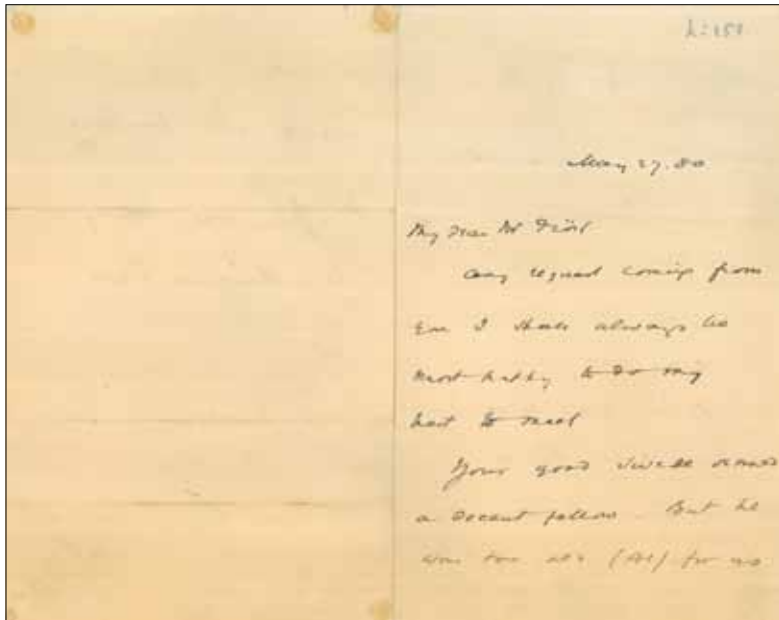 May 27. 80
My dear Mr
any request coming from
I shall always be
most happy to do my
best to meet
Your good seemed
a decent fellow. But he
was too old for us